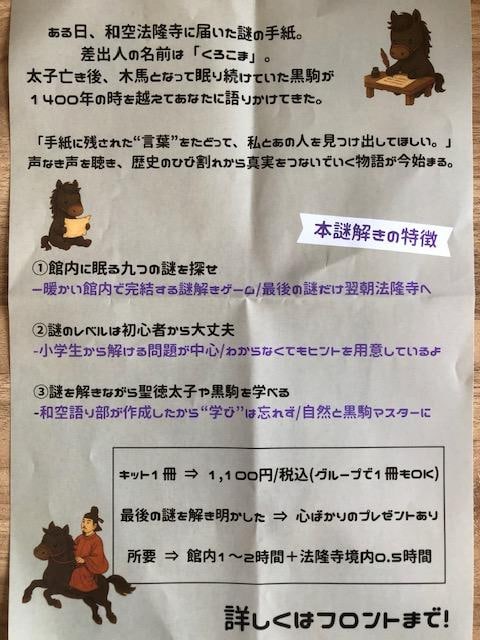 ある日、和空法隆寺に届いた謎の手紙。
差出人の名前は「くろこま」。
太子亡き後、木馬となって眠り続けていた黒駒が
1400年の時を越えてあなたに語りかけてきた。
「手紙に残された“言葉”をたどって、私とあの人を見つけ出してほしい。」
声なき声を聴き、歴史のひび割れから真実をつないでいく物語が今始まる。
本謎解きの特徴
①館内に眠る九つの謎を探せ
-暖かい館内で完結する謎解きゲーム/最後の謎だけ翌朝法隆寺へ
②謎のレベルは初心者から大丈夫
-小学生から解ける問題が中心/わからなくてもヒントを用意しているよ
③謎を解きながら聖徳太子や黒駒を学べる
-和空語り部が作成したから“学び”は忘れず/自然と黒駒マスターに
キット1冊 ⇒ 1,100円/税込(グループで1冊もOK)
最後の謎を解き明かした ⇒ 心ばかりのプレゼントあり
所要 ⇒ 館内1~2時間+法隆寺境内0.5時間
詳しくはフロントまで!